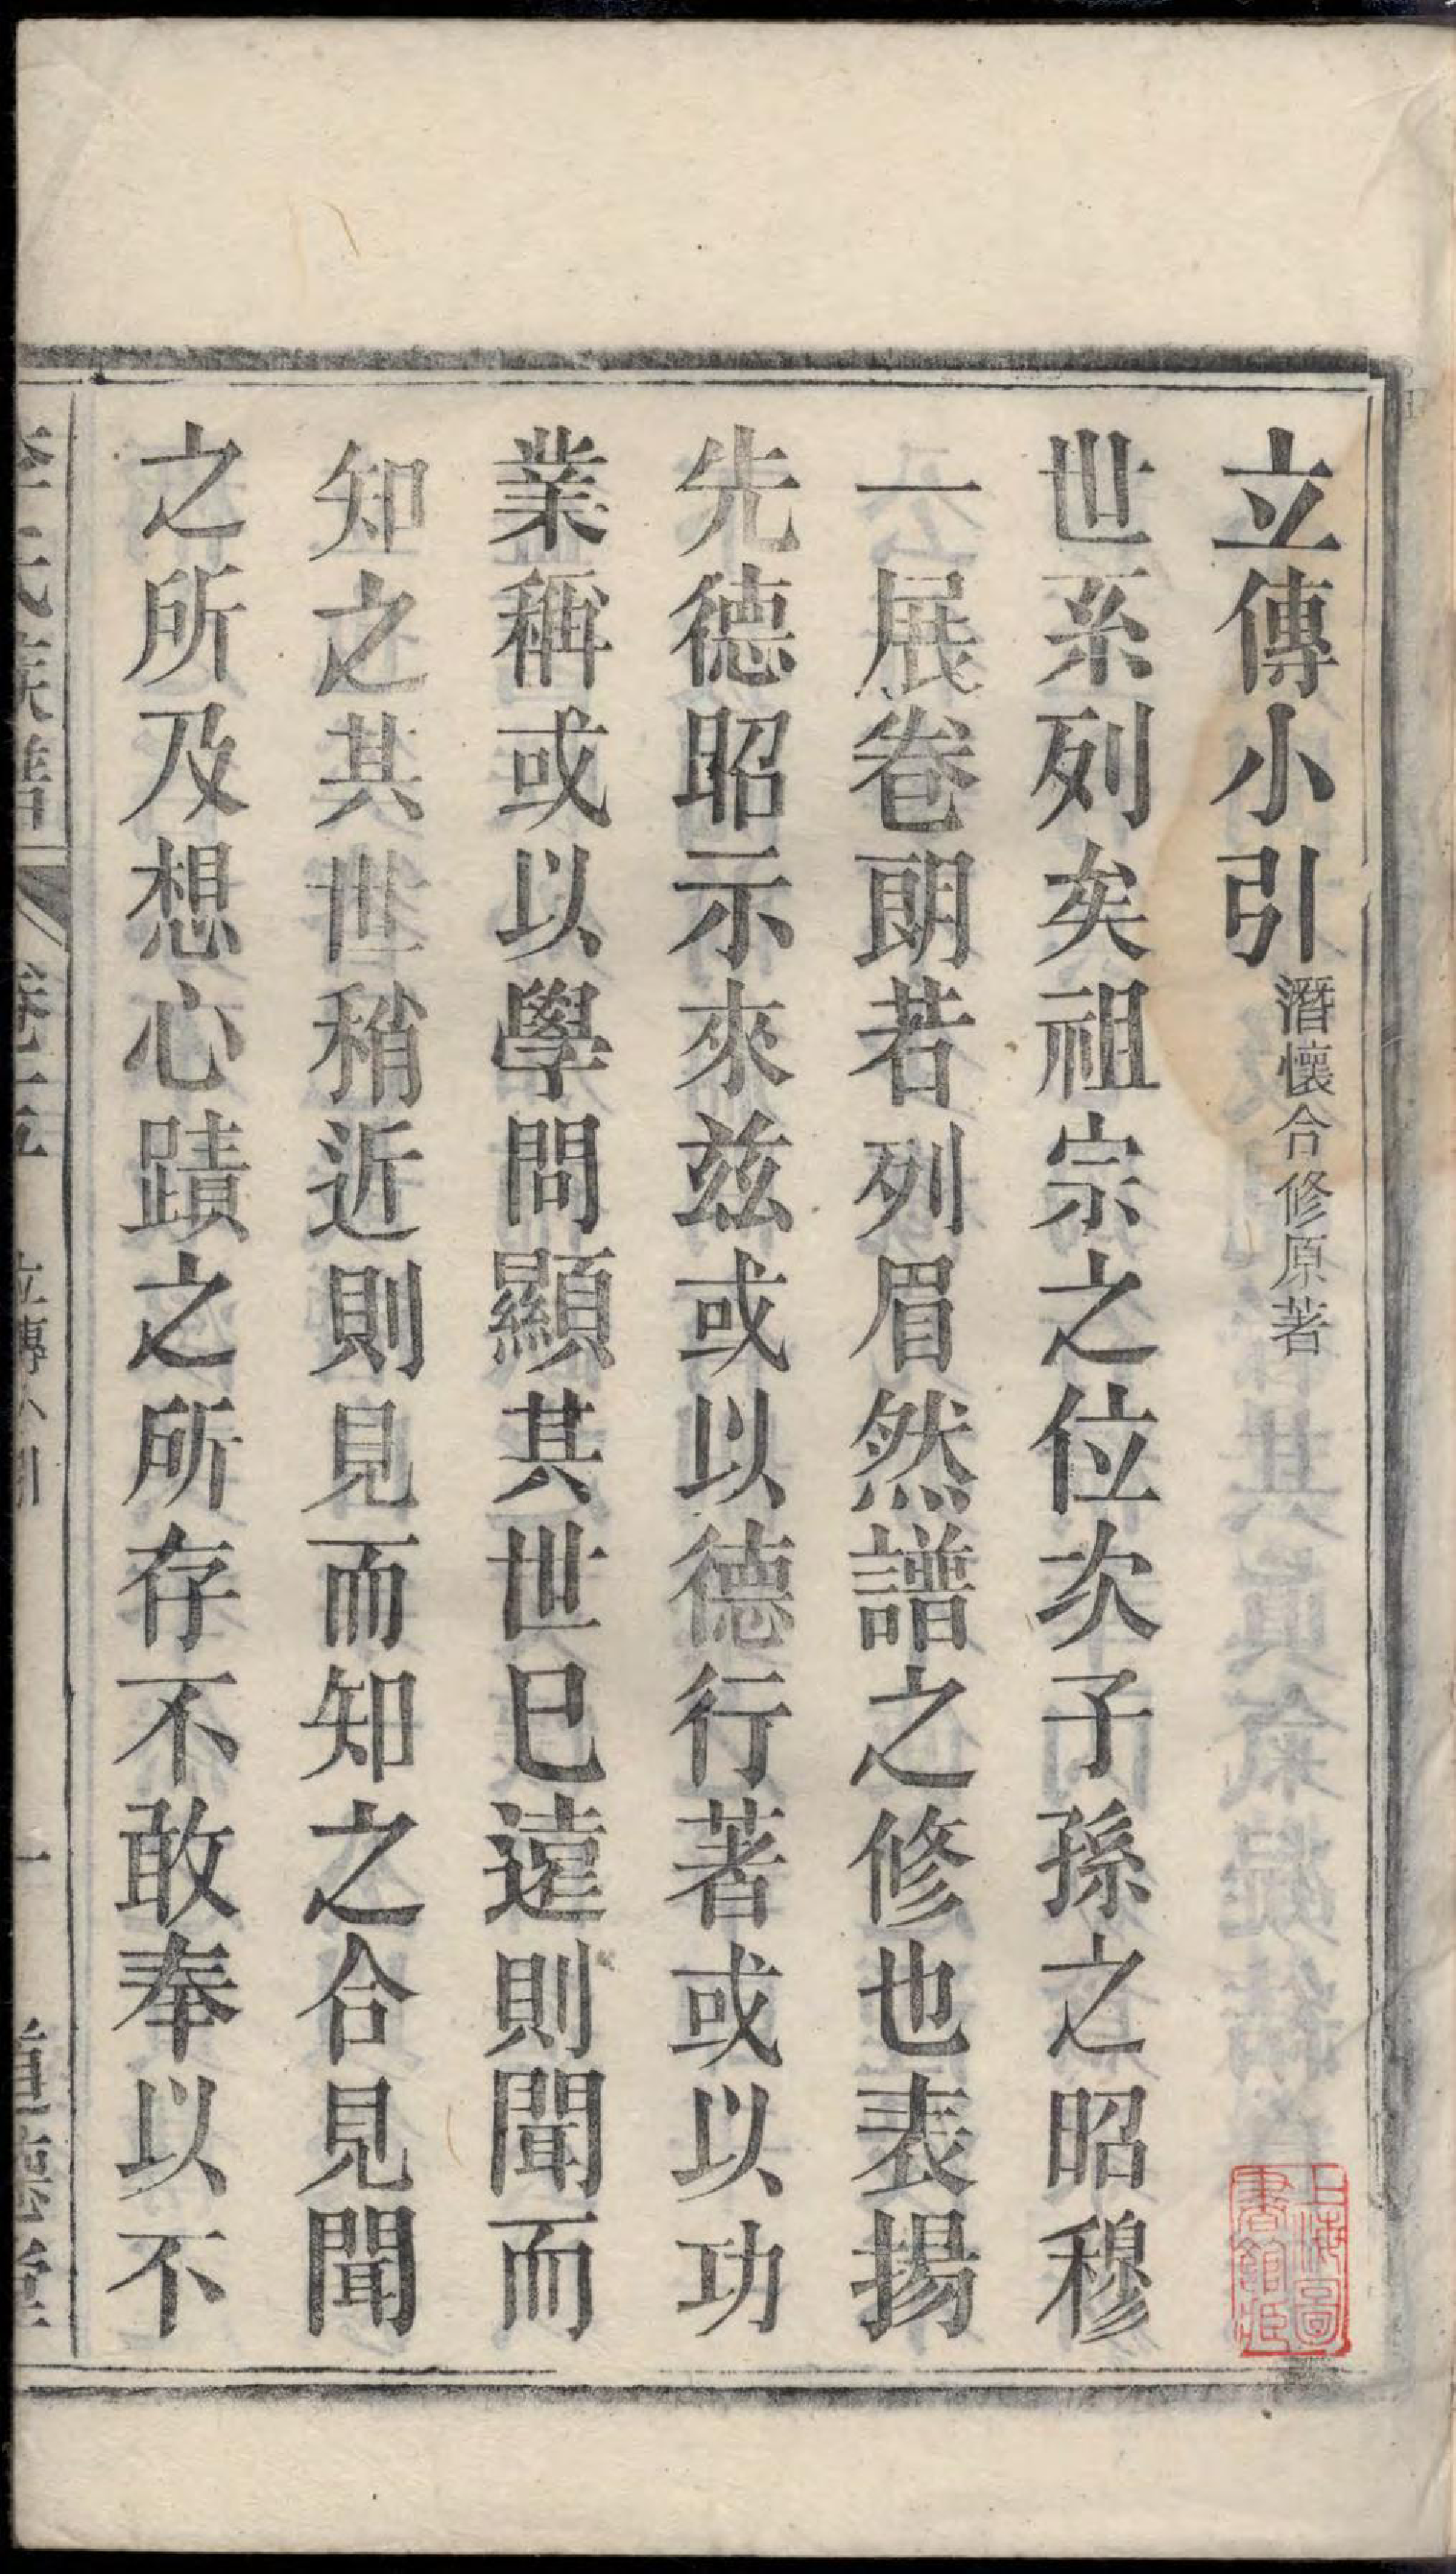 立傳小引 潛懷合修原著
世系列矣祖宗之位次子孫之昭穆
一展卷朗若列眉然譜之修也表揚
先德昭示來兹或以德行著或以功
業稱或以學問顯其世巳遠則聞而
知之其世稍近則見而知之合見聞
之所及想心蹟之所存不敢奉以不
上海圖書館藏